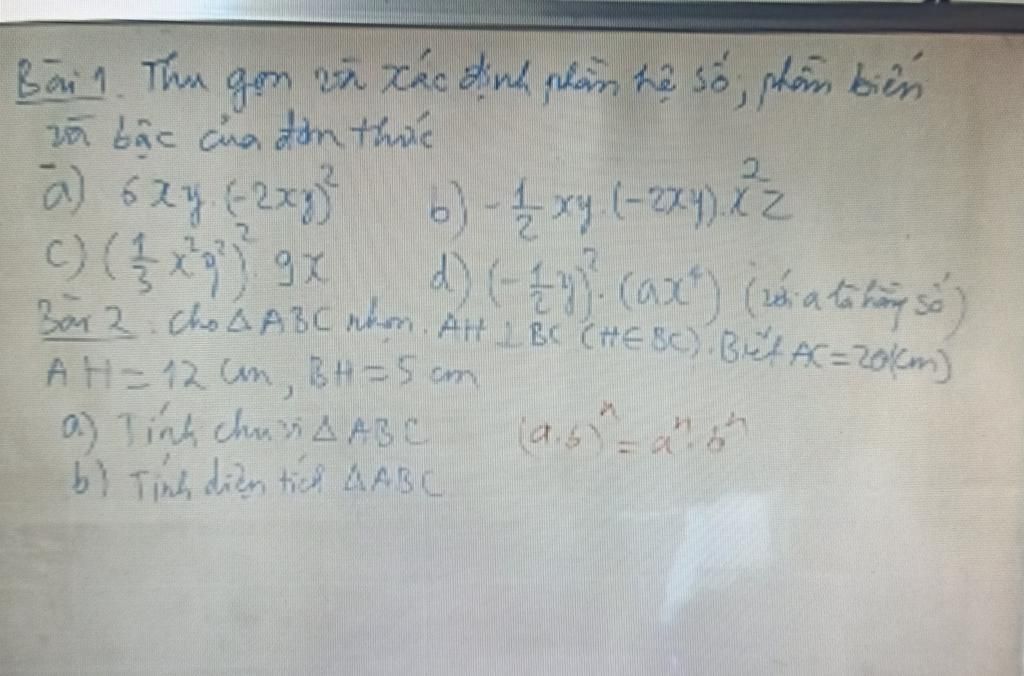 Bài 1. Thu gọn và xác định phần hệ số, phần biến
và bậc của đơn thức
a) 6xy.(-2xy)² b) -1/2 xy.(-2xy).x²z
c) (1/3 x²y²)². 9x d) (-1/2 y)². (ax⁴) (với a là hằng số)
Bài 2. Cho △ABC nhọn. AH ⊥ BC (H∈BC). Biết AC = 20(cm)
AH = 12 cm, BH = 5 cm
a) Tính chu vi △ABC (a.b)ⁿ = aⁿ.bⁿ
b) Tính diện tích △ABC